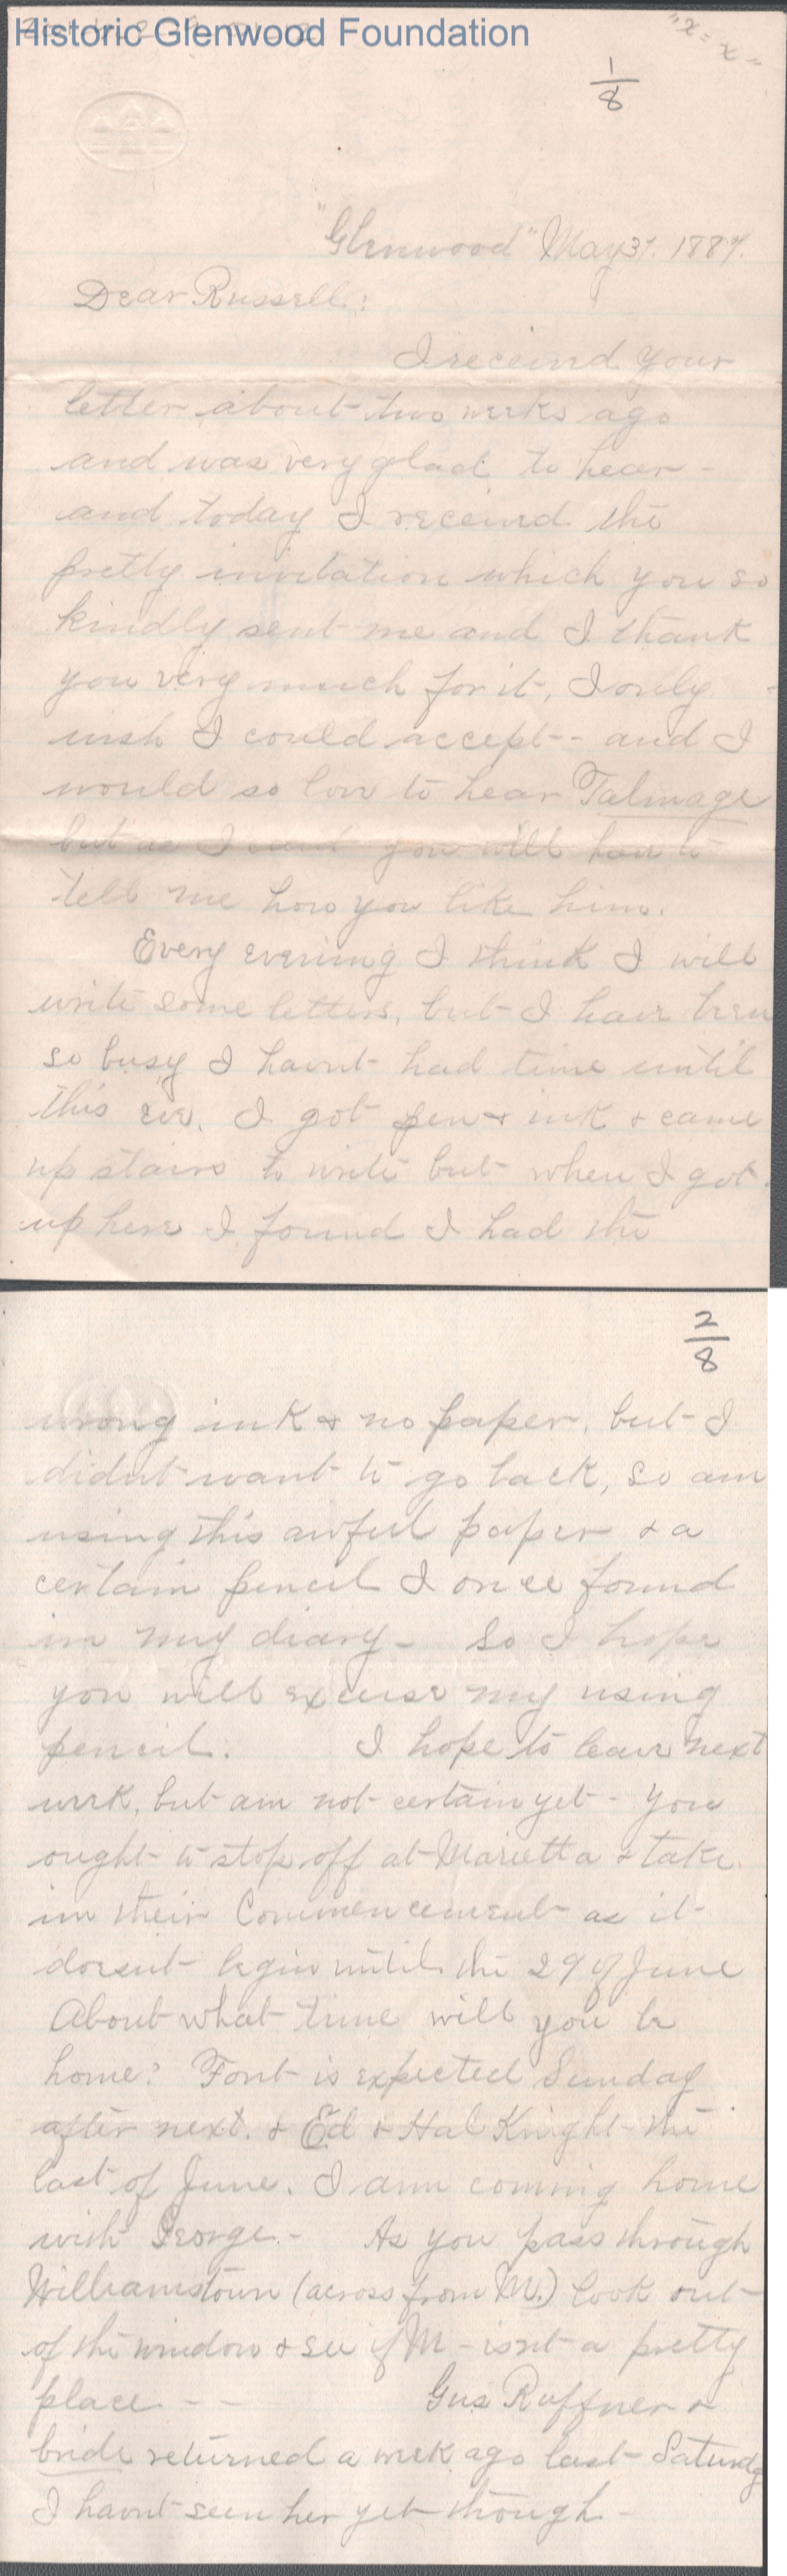 Historic Glenwood Foundation
"x = x"
1/8
"Glenwood" May 31. 1887.
Dear Russell:
I received your
letter about two weeks ago
and was very glad to hear -
and today I received the
pretty invitation which you so
kindly sent me and I thank
you very much for it, I only
wish I could accept - and I
would so love to hear Talmage
but as I cant you will have to
tell me how you like him.
Every evening I think I will
write some letters, but I have been
so busy I havnt had time until
this eve. I got pen & ink & came
up stairs to write but when I got
up here I found I had the
2/8
wrong ink & no paper, but I
didnt want to go back, so am
using this awful paper & a
certain pencil I once found
in my diary - So I hope
you will excuse my using
pencil. I hope to leave next
week, but am not certain yet - You
ought to stop off at Marietta & take
in their Commencement as it
doesnt begin until the 29 of June
About what time will you be
home? Font is expected Sunday
after next. & Ed & Hal Knight the
last of June. I am coming home
with George. - As you pass through
Williamstown (across from M.) look out
of the window & see if M - isnt a pretty
place - -
Gus Ruffner &
bride returned a week ago last Saturday
I havnt seen her yet though -